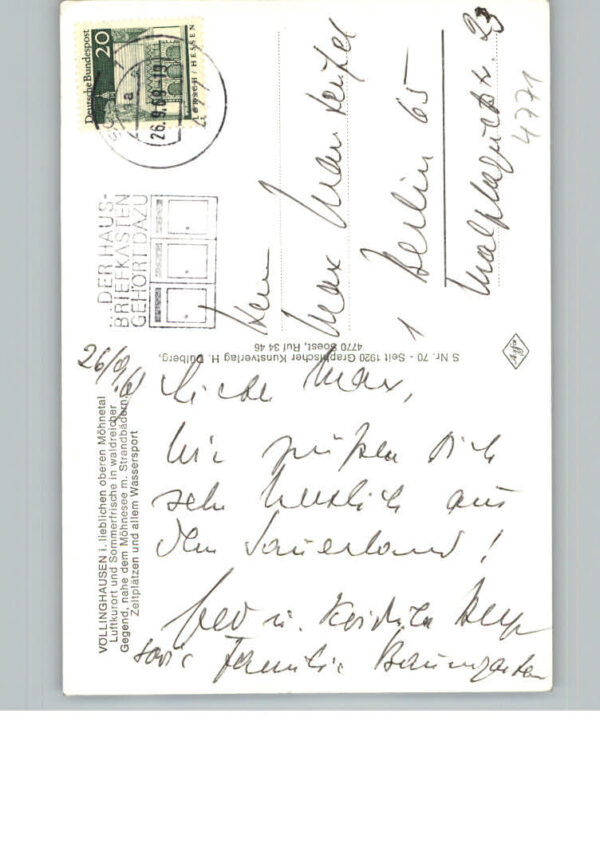 Deutsche Bundespost
20
LORSCH / HESSEN
26.9.68-19
a
...DER HAUS-
BRIEFKASTEN
GEHÖRT DAZU
Herrn
Max Manteufel
1 Berlin 65
Malplaquetstr. 23
4771
S Nr. 70 - Seit 1920 Graphischer Kunstverlag H. Dülberg,
4770 Soest, Ruf 34 46
Agfa
VÖLLINGHAUSEN i. lieblichen oberen Möhnetal
Luftkurort und Sommerfrische in waldreicher
Gegend, nahe dem Möhnesee m. Strandbädern,
Zeltplätzen und allem Wassersport
26/9.68
Lieber Max,
Wir grüßen Dich
sehr herzlich aus
dem Sauerland!
u.
sowie Familie Baumgarten